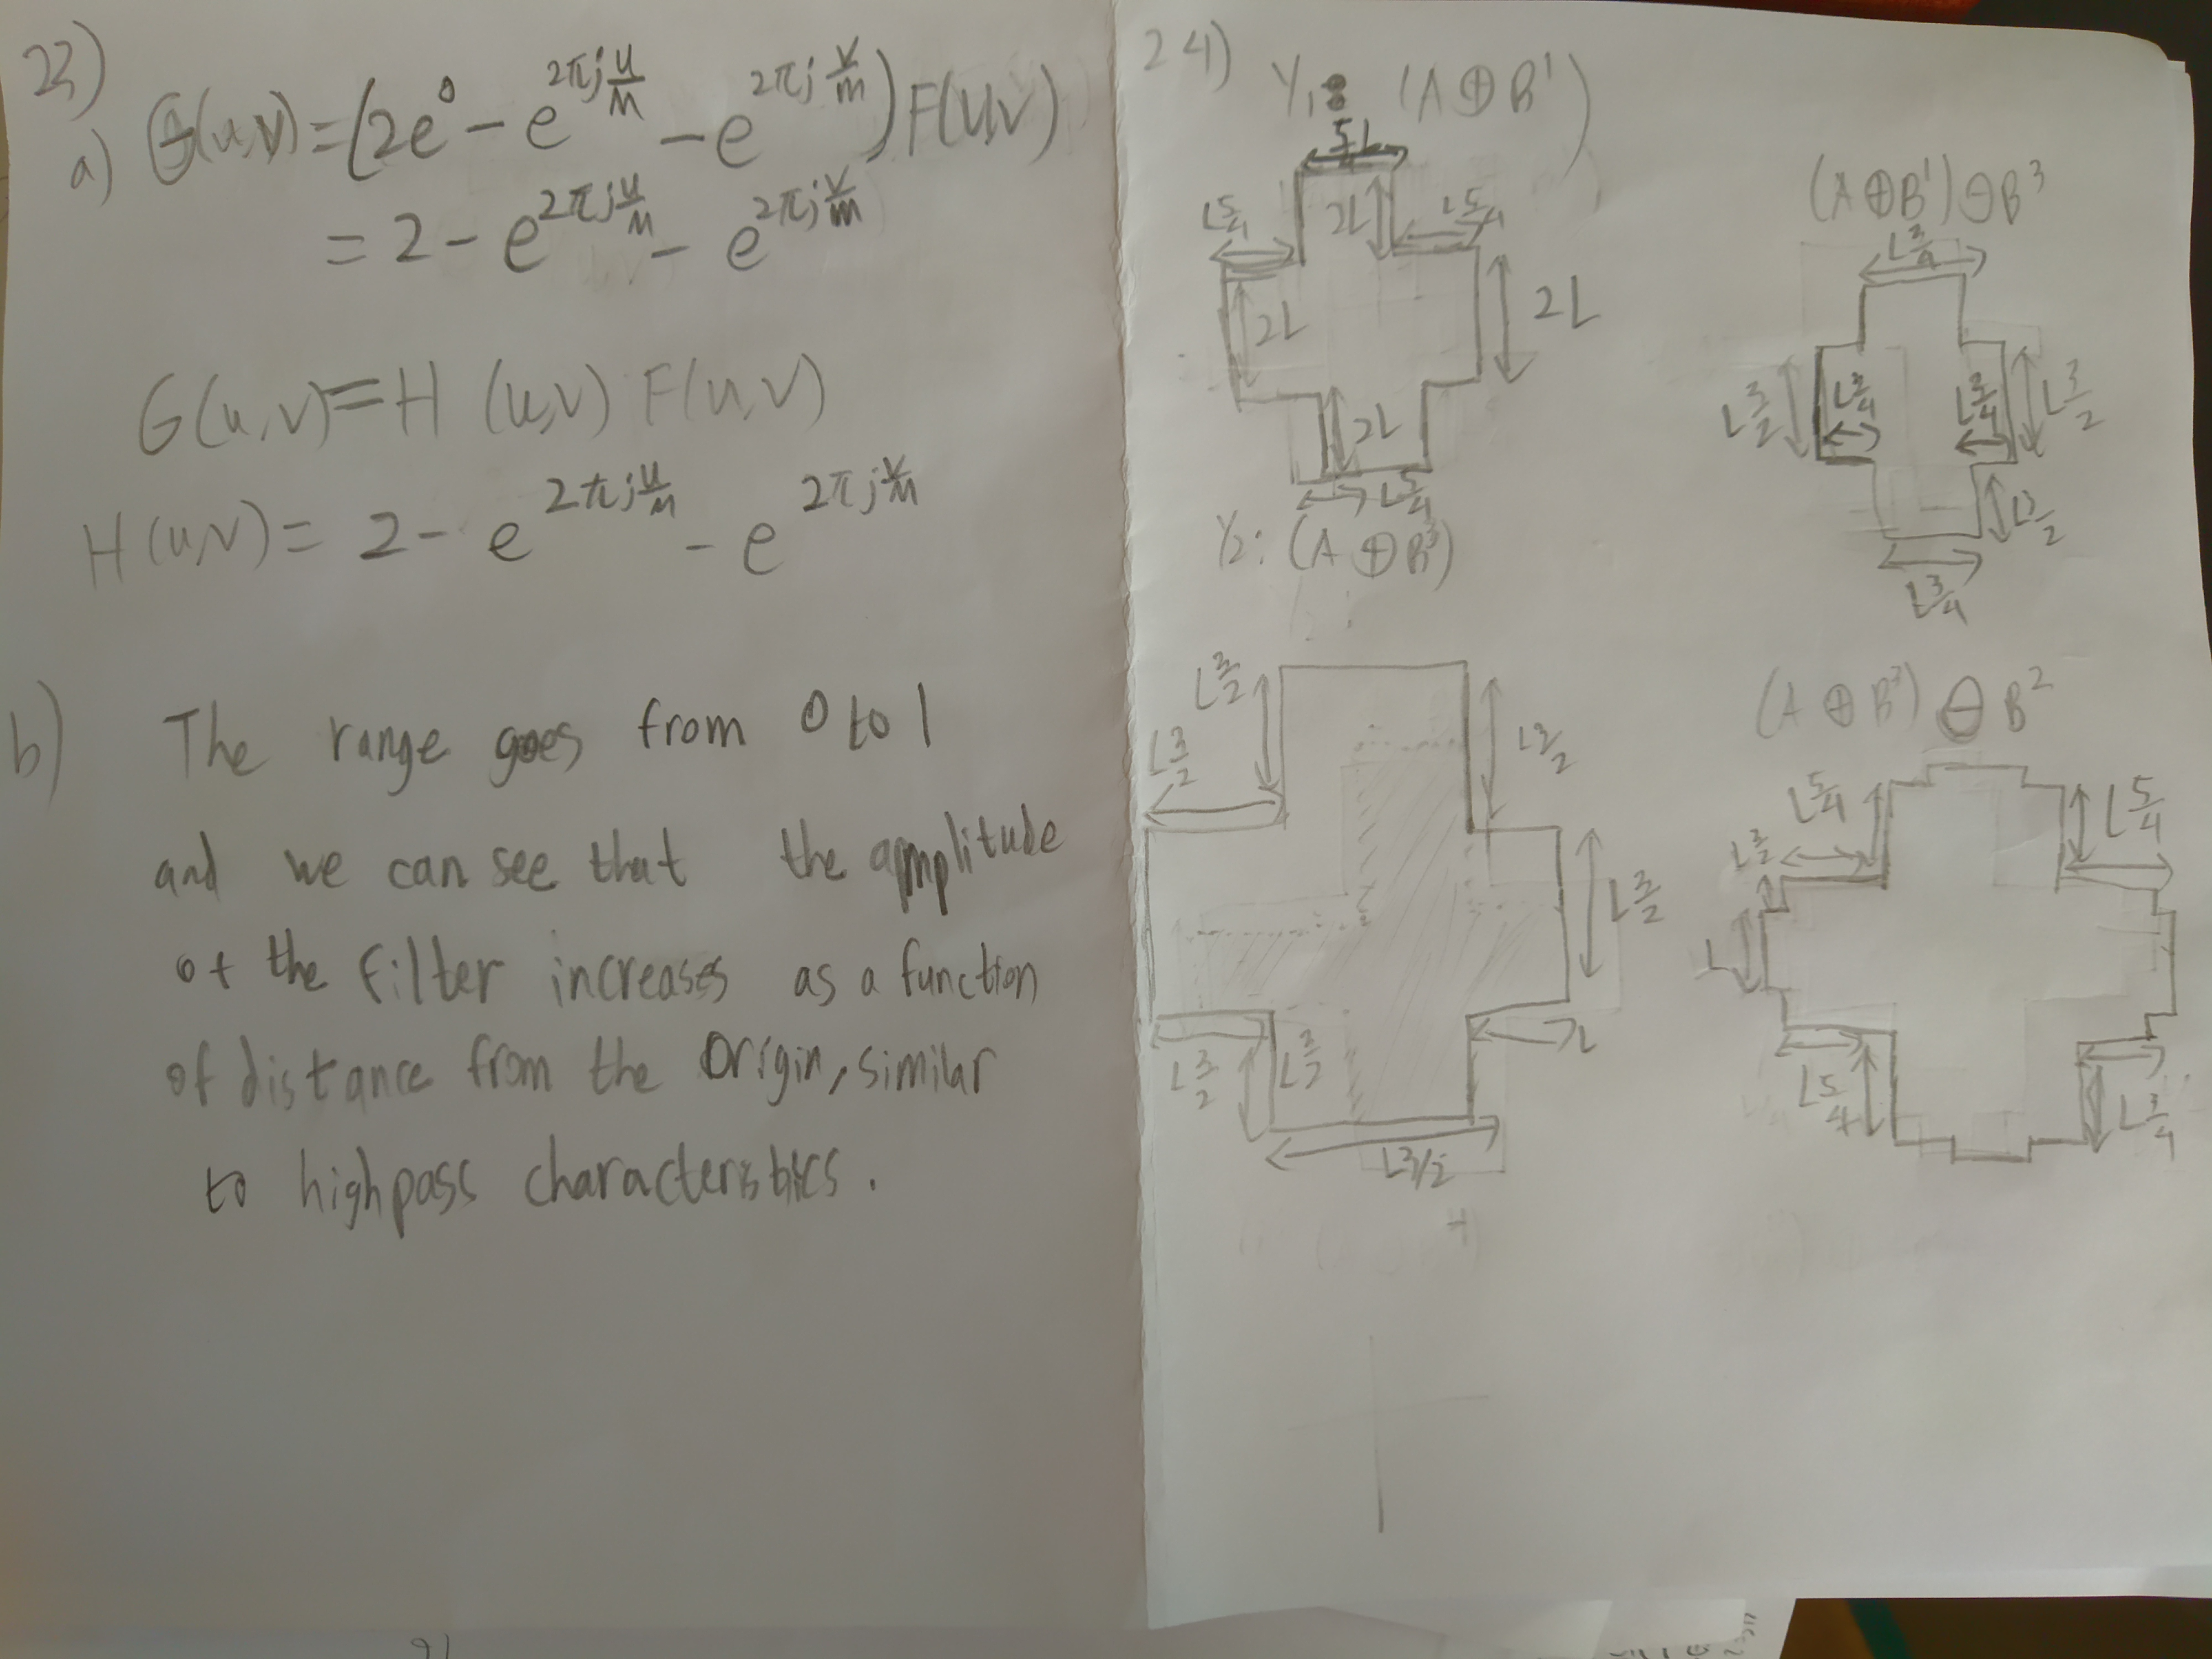 23)
a) G(u,v) = (2e^0 - e^{2πj u/M} - e^{2πj v/m}) F(u,v)
= 2 - e^{2πj u/M} - e^{2πj v/m}
G(u,v) = H (u,v) F(u,v)
H(u,v) = 2 - e^{2πj u/m} - e^{2πj v/m}
b) The range goes from 0 to 1
and we can see that the amplitude
of the filter increases as a function
of distance from the origin, similar
to highpass characteristics.
24) Y1: (A ⊕ B^1)
L 5/4
2L
L 5/4
2L
2L
2L
L 5/4
(A ⊕ B^1) ⊖ B^3
L 3/4
L 3/2
L 3/4
L 3/4
L 3/2
L 3/2
L 3/4
Y2: (A ⊕ B^3)
L 3/2
L 3/2
L 3/2
L 3/2
L 3/2
L 3/2
L
L 3/2
(A ⊕ B^3) ⊖ B^2
L 5/4
L 5/4
L 3/2
L
L 5/4
L 3/4